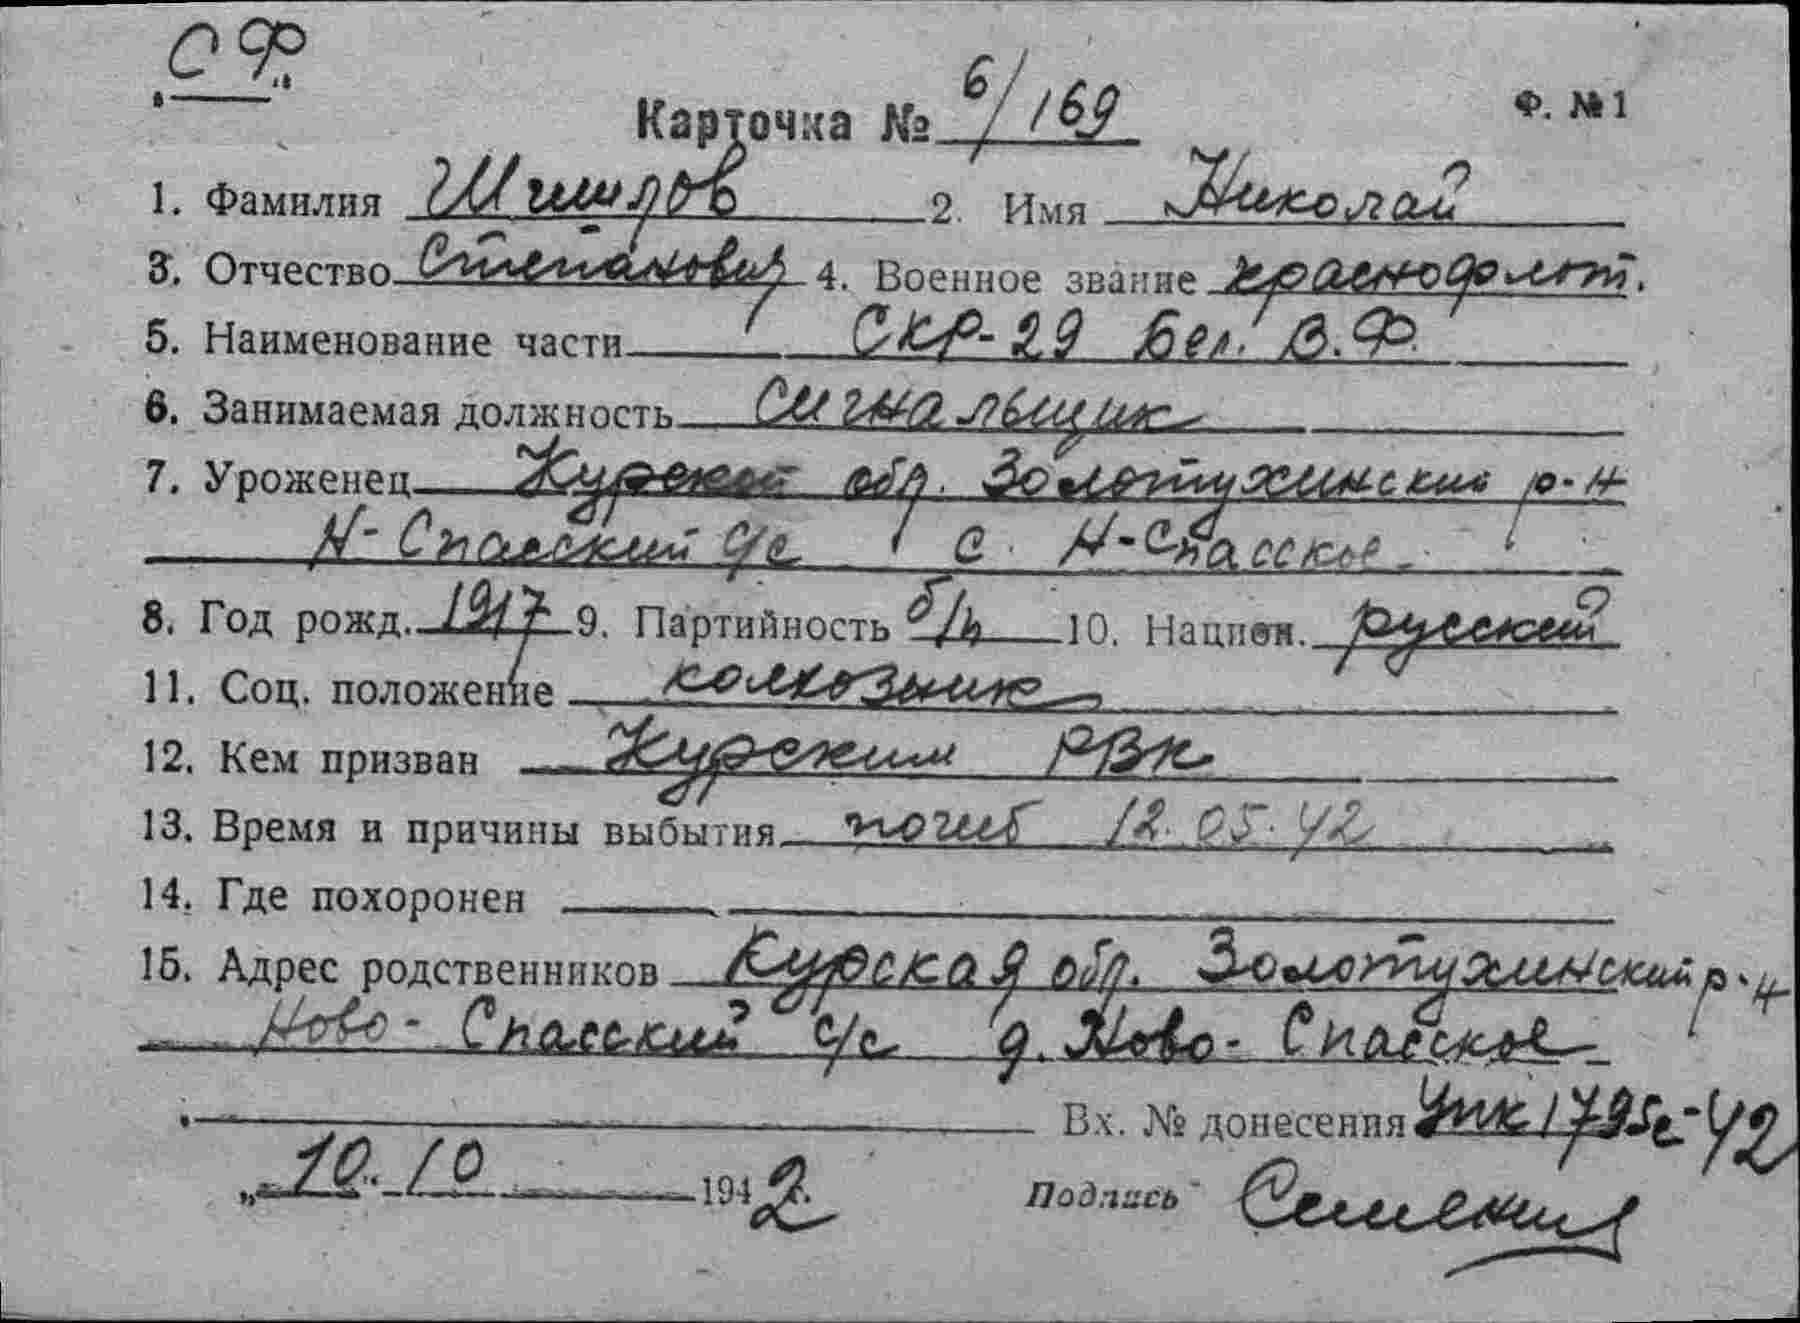 СФ
Карточка № 6/169
Ф. № 1
1. Фамилия 2. Имя Николай
3. Отчество Степанович 4. Военное звание краснофлот.
5. Наименование части СКР-29 Бел. В.Ф.
6. Занимаемая должность сигнальщик
7. Уроженец Курской обл. Золотухинский р-н
Н-Спасский с/с с. Н-Спасское
8. Год рожд. 1917 9. Партийность б/п 10. Национ. русский
11. Соц. положение колхозник
12. Кем призван Курским РВК
13. Время и причины выбытия погиб 12.05.42
14. Где похоронен
15. Адрес родственников Курская обл. Золотухинский р-н
Ново-Спасский с/с д. Ново-Спасское
Вх. № донесения УПК 1795с-42
„10" 10 1942
Подпись